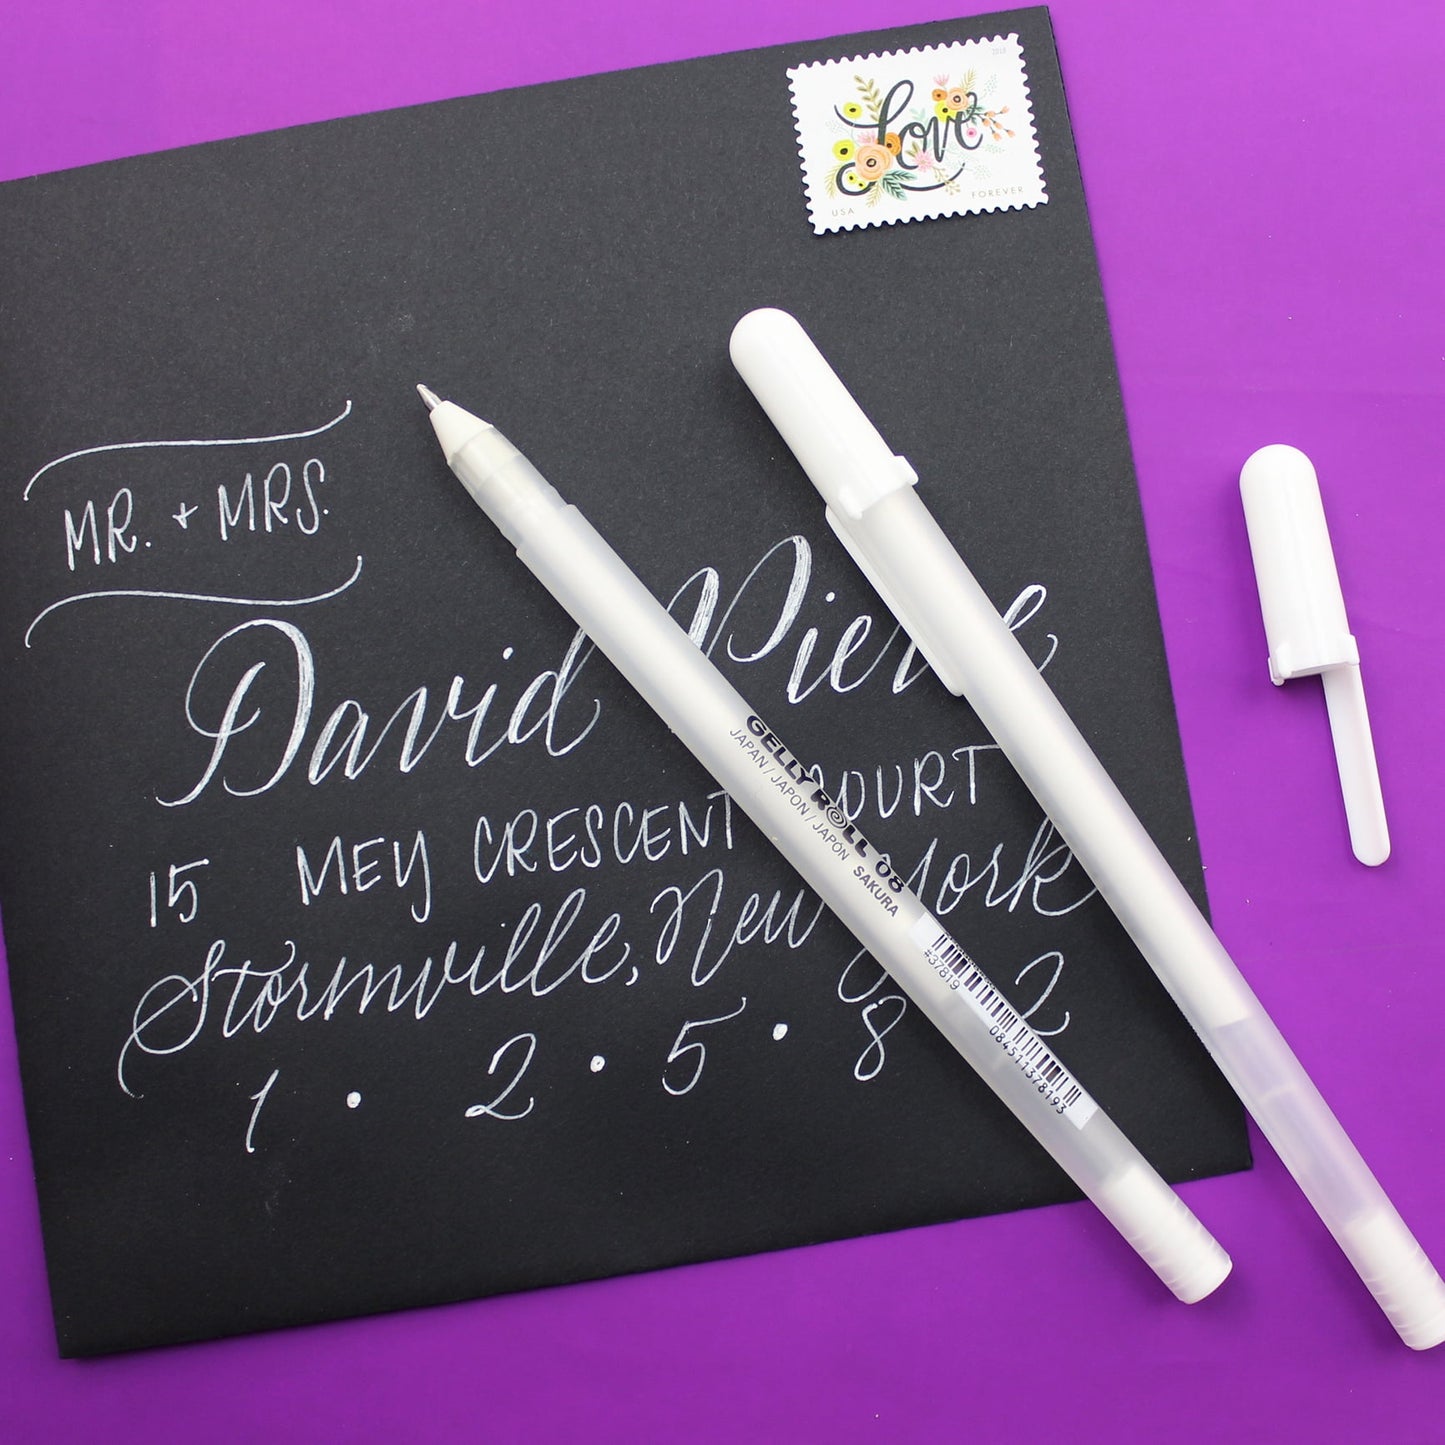 2018
Love
USA FOREVER
MR. + MRS.
David Pierre
15 MEY CRESCENT COURT
Stormville, New York
1 • 2 • 5 • 8 2
GELLY ROLL 08
JAPAN / JAPON / JAPÓN SAKURA
#37819
084511378193